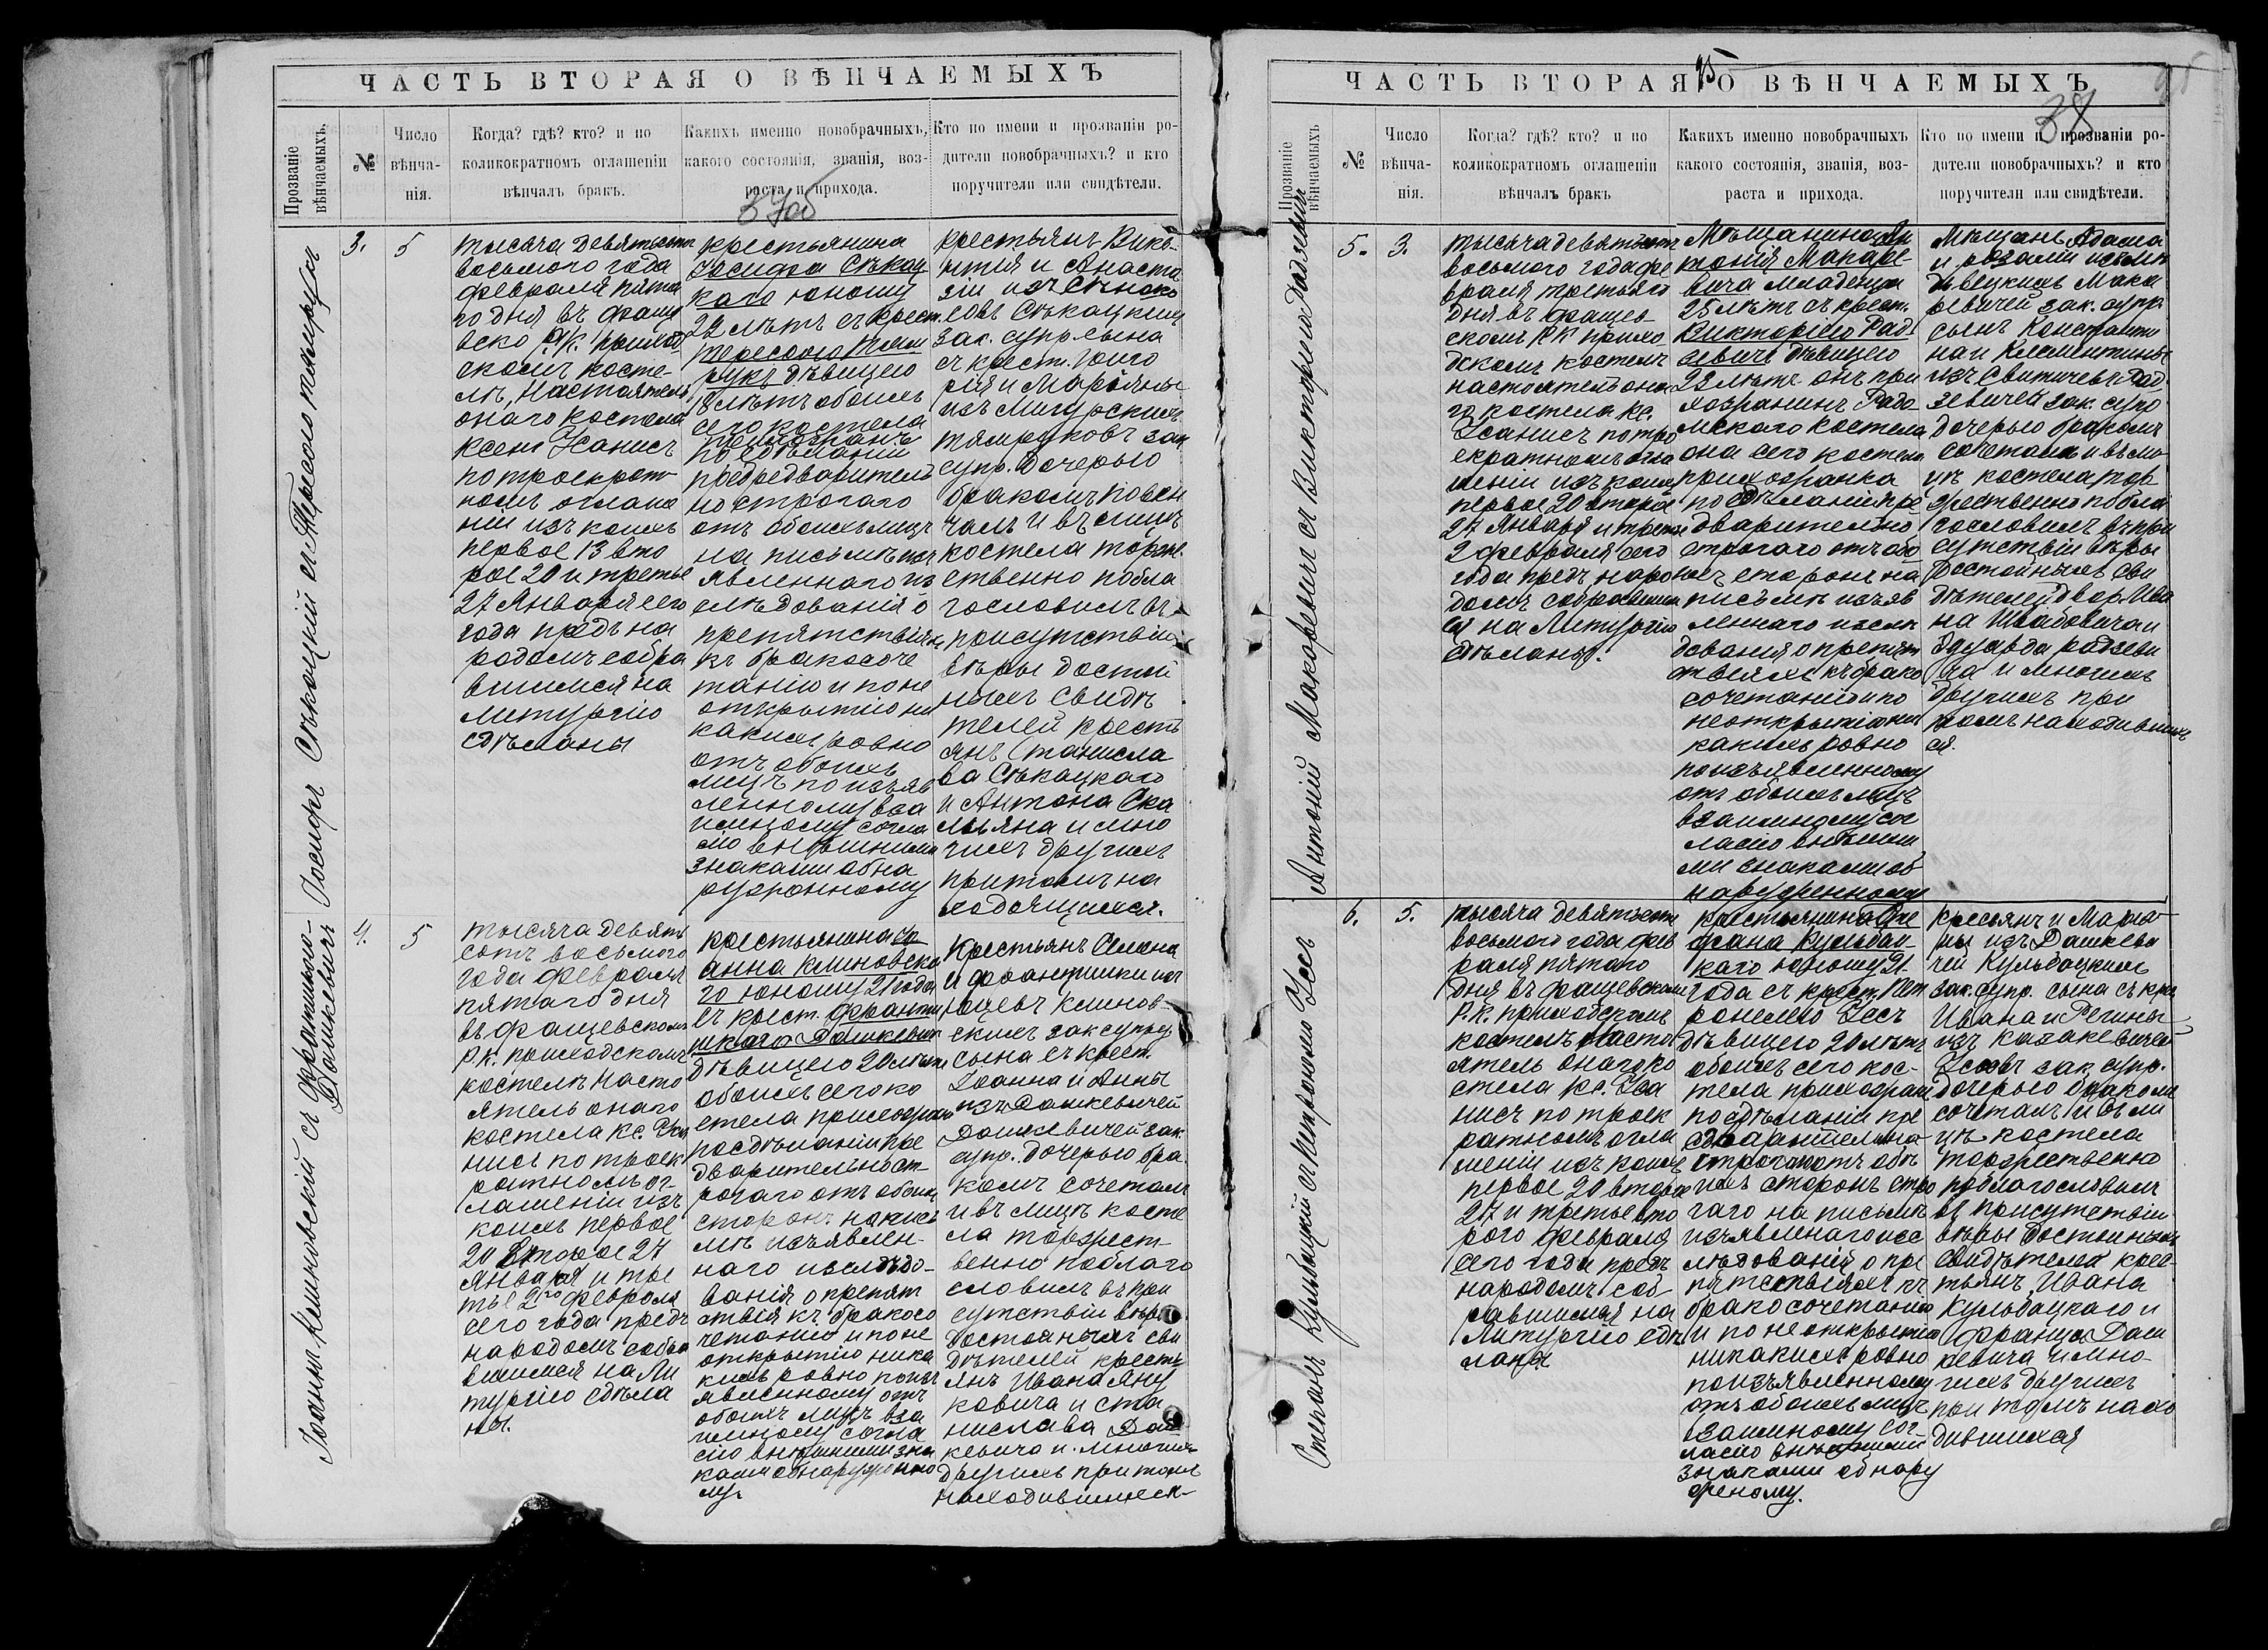 ЧАСТЬ ВТОРАЯ О ВѢНЧАЕМЫХЪ
Прозваніе
вѣнчаемыхъ.
№
Число
вѣнча-
нія.
Когда? гдѣ? кто? и по
коликократномъ оглашеніи
вѣнчалъ бракъ.
Какихъ именно новобрачныхъ,
какого состоянія, званія, воз-
раста и прихода.
Кто по имени и прозваніи ро-
дители новобрачныхъ? и кто
поручители или свидѣтели.
37об
Іосифъ Сѣкацкій съ Тересою
3.
5
тысяча девятьсотъ
восьмого года
февраля пята
го дня въ фащ
веско Р.К. приход
скомъ косте-
лѣ, Настоятель
онаго костела
ксенг Усанисъ
по троекрат-
номъ оглаше
ніи изъ коихъ
первое 13 вто
рое 20 и третье
27 Января сего
года предъ на
родомъ собра
вшимся на
Литургію
сдѣланы
крестьянина
Іосифа Сѣкац
каго юношу
22 лѣтъ съ крест.
Тересою
дѣвицею
18 лѣтъ обоихъ
сего костела
прихожанъ
по сдѣланіи
предредваритель
но строгаго
отъ обоихъ лицъ
на письмѣ изъ
явленнаго из
слѣдованія о
препятствіяхъ
къ бракосоче
танію и по не
открытію ни
какихъ ровно
отъ обоихъ
лицъ по изъяв
ленному вза
имному согла
сію внѣшними
знаками обна
руженному
Крестьянъ Вике-
нтія и Анаста
зіи изъ
совъ Сѣкацких
зак. супр. сына
съ крест. Григо
рія и Маріяны
изъ Мигурскихъ
зак
супр. дочерью
бракомъ повен
чалъ и въ лицѣ
костела торже
ственно побла
гословилъ въ
присутствіи
вѣры достой
ныхъ свидѣ
телей кресть
янъ Станисла
ва Сѣкацкаго
и Антона Ска
льяна и мно
гихъ другихъ
при томъ на
ходящихся.
Іоаннъ Клиновскій съ Франтишкою
Дашкевичъ
4.
5
тысяча девять
сотъ восьмого
года февраля
пятаго дня
въ фащевскомъ
Р.К. приходскомъ
костелѣ Насто
ятель онаго
костела кс. Уса
нисъ по троек
ратномъ ог-
лашеніи изъ
коихъ первое
20 второе 27
Января и тре
тье 2го февраля
сего года предъ
народомъ собра
вшимся на Ли
тургію сдѣла
ны.
крестьянина Іо
анна Клиновска
го юношу 21 года
съ крест. Франти
шкаго Дашкевич
дѣвицею 20 лѣтъ
обоихъ сего ко
стела прихожан
по сдѣланіи пре
дварительно ст
рогаго отъ обоих
сторонъ на пись
мѣ изъявлен-
наго изслѣдо-
ванія о препят
ствія къ бракосо
четанію и по не
открытію ника
кихъ ровно по изъ
явленному отъ
обоихъ лицъ вза
имному согла
сію внѣшними зна
ками обнаруженно
му.
Крестьянъ Семена
и Франтишки изъ
Клинов-
скихъ зак супру
сына съ крест.
Іоанна и Анны
изъ Дашкевичей
Дашкевичей зак.
супр. дочерью бра
комъ сочеталъ
и въ лицѣ косте
ла торжест-
венно поблаго
словилъ въ при
сутствіи вѣры
достойныхъ сви
дѣтелей кресть
янъ Ивана Яну
ковича и Ста
нислава Даш
кевича и многихъ
другихъ при томъ
находившихся
ЧАСТЬ ВТОРАЯ О ВѢНЧАЕМЫХЪ
38
Прозваніе
вѣнчаемыхъ
№
Число
вѣнча-
нія.
Когда? гдѣ? кто? и по
коликократномъ оглашеніи
вѣнчалъ бракъ
Какихъ именно новобрачныхъ
какого состоянія, званія, воз-
раста и прихода.
Кто по имени и прозваніи ро-
дители новобрачныхъ? и кто
поручители или свидѣтели.
Антоній Макаревичъ съ Викторіею Радзевичъ
5.
3.
тысяча девятьсотъ
восьмого года фе
враля третьяго
дня въ фащев
скомъ РК прихо
дскомъ костелѣ
настоятель она
го костела кс.
Усанисъ по тро
екратномъ огла
шеніи изъ коихъ
первое 20 второе
27 Января и третье
2 февраля сего
года предъ наро
домъ собравшим
ся на Литургію
сдѣланы.
Мѣщанина Ан
тонія Макаре
вича младенца
25 лѣтъ съ крест.
Викторіею Рад
зевичъ дѣвицею
22 лѣтъ онъ при
хожанинъ Радо
мскаго костела
она сего костела
прихожанка
по сдѣланіи пре
дварительно
строгаго отъ обо
ихъ сторонъ на
письмѣ изъяв
леннаго изслѣ
дованія о препят
ствіяхъ къ брако
сочетанію и по
неоткрытію ни
какихъ ровно
по изъявленному
отъ обоихъ лицъ
взаимному сог
ласію внѣшни
ми знаками об
наруженному
Мѣщанъ Адама
и Розаліи изъ
Макаревичей зак. супр
сынъ Константи
на и Клементины
изъ Свитичевъ Рад
зевичей зак. супр
дочерью бракомъ
сочеталъ и въ ли
цѣ костела тор
жественно побла
гословилъ въ при
сутствіи вѣры
достойныхъ сви
дѣтелей двор. Ива
на и
Эдуарда Радзеви
ча и многихъ
другихъ при
томъ находивших
ся.
Степанъ Кульбацкій съ Петронелею Усъ
6.
5.
тысяча девятьсотъ
восьмого года фев
раля пятаго
дня въ фащевскомъ
Р.К. приходскомъ
костелѣ насто
ятель онаго ко
стела кс. Уса
нисъ по троек
ратномъ огла
шеніи изъ коихъ
первое 20 второе
27 и третье вто
рого февраля
сего года предъ
народомъ соб
равшимся на
Литургію сдѣ
ланы
крестьянина Сте
фана Кульбац
каго юношу 21
года съ крест. Пет
ронелею Усъ
дѣвицею 20 лѣтъ
обоихъ сего кос-
тела прихожан
по сдѣланіи пре
дварительно
строгаго отъ обѣ
ихъ сторонъ стро
гаго на письмѣ
изъявленнаго изс
лѣдованія о пре
пятствіяхъ къ
бракосочетанію
и по не открытію
никакихъ ровно
по изъявленному
отъ обоихъ лицъ
взаимному сог-
ласію внѣшними
знаками обнару
женому.
Кресьянъ и Марья
ны изъ Дашкеви
чей Кульбацкихъ
зак. супр. сына съ кре
Ивана и Регины
изъ Казакевичей
Усовъ зак. супр.
дочерью бракомъ
сочеталъ и въ ли
цѣ костела
торжественно
поблагословилъ
въ присутствіи
вѣры достойныхъ
свидѣтелей крес-
тьянъ Ивана
Кульбацкаго и
Франца Даш
кевича и мно-
гихъ другихъ
при томъ нахо
дившихся